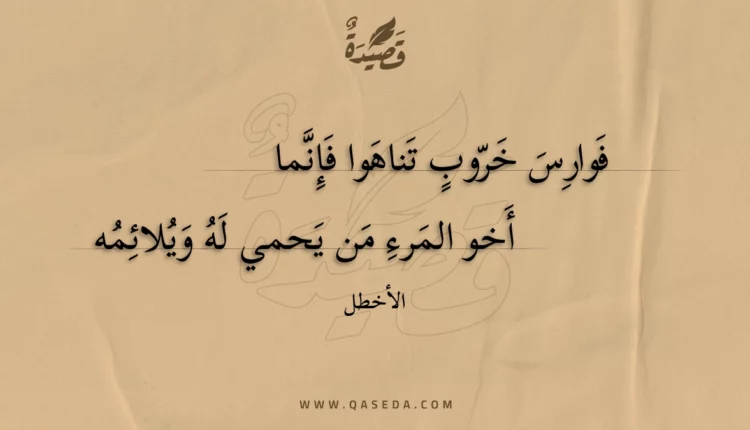 قَصِيدَةٌ
فَوارِسَ خَرّوبٍ تَناهَوا فَإِنَّما
أَخو المَرءِ مَن يَحمي لَهُ وَيُلائِمُه
الأخطل
WWW.QASEDA.COM